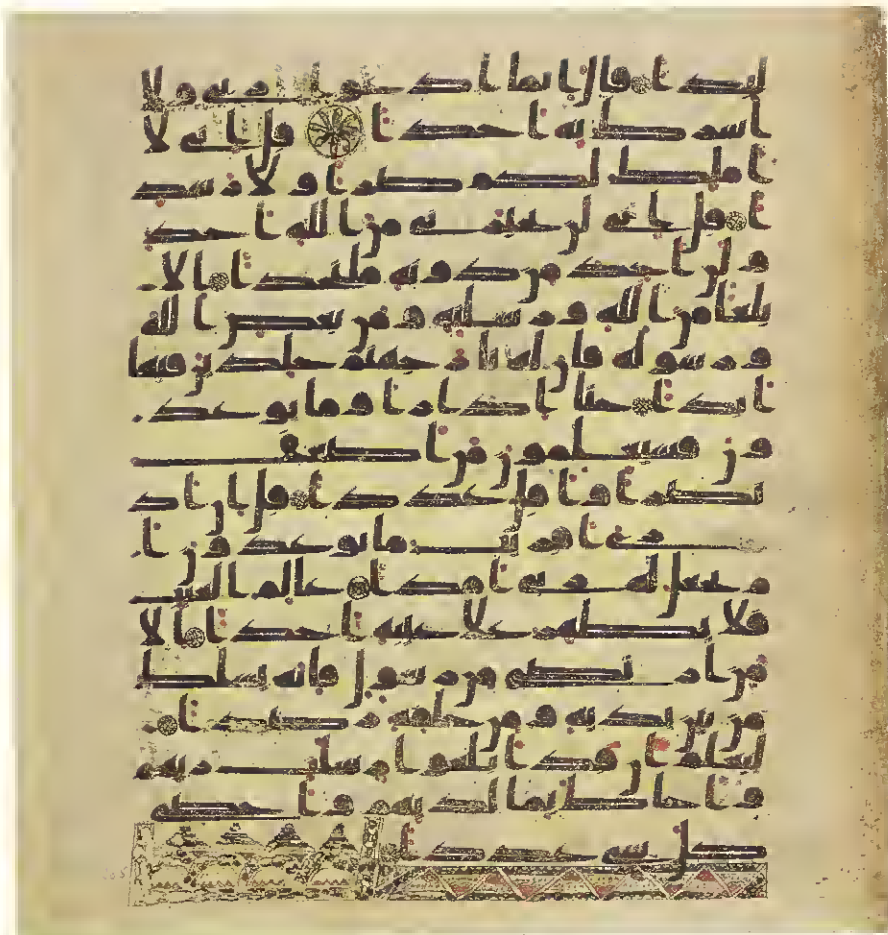 لبدا قال انما ادعوا ربي ولا
اشرك به احدا قل اني لا
املك لكم ضرا ولا رشد
ا قل اني لن يجيرني من الله احد
ولن اجد من دونه ملتحدا الا
بلغا من الله ورسلته ومن يعص الله
ورسوله فان له نار جهنم خلدين فيها
ابدا حتى اذا راوا ما يوعد
ون فسيعلمون من اضعف
ناصرا واقل عددا قل ان اد
ري اقريب ما توعدون ا
م يجعل له ربي امدا عالم الغيب
فلا يظهر على غيبه احدا الا
من ارتضى من رسول فانه يسلك
من بين يديه ومن خلفه رصدا
ليعلم ان قد ابلغوا رسلت ربهم
واحاط بما لديهم واحصى
كل شي عددا